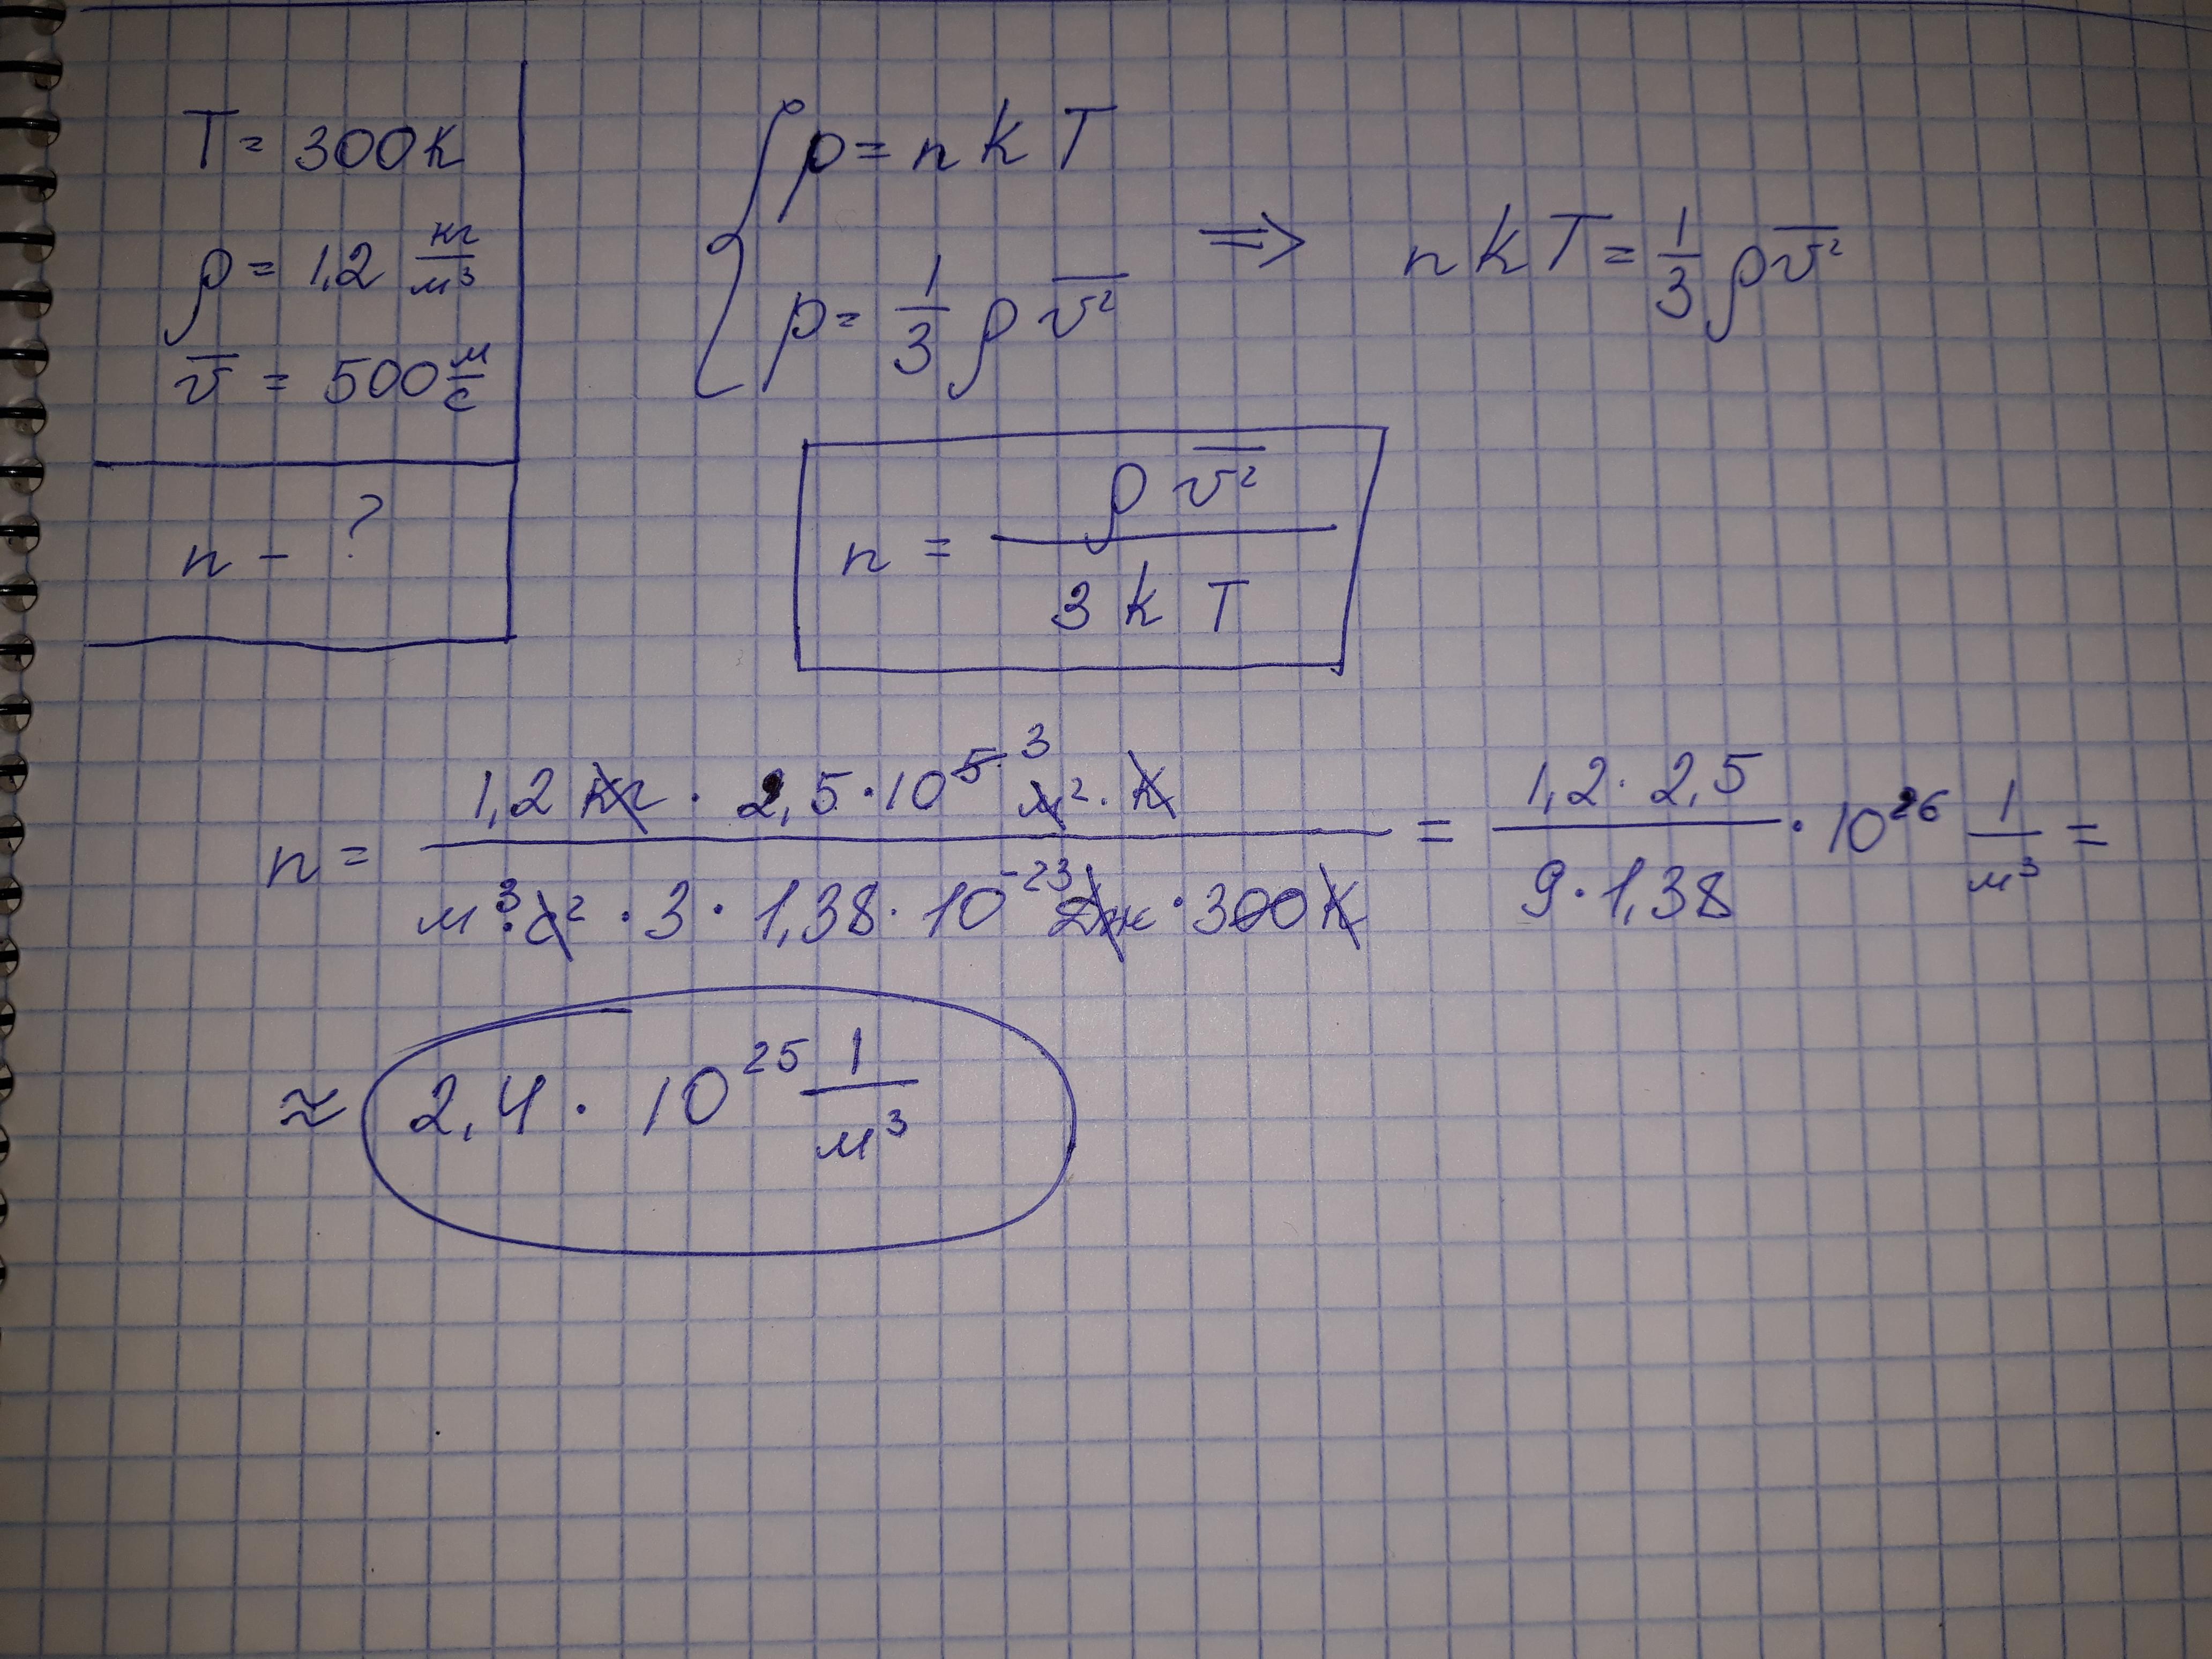 T = 300K
ρ = 1,2 кг/м³
v̅ = 500 м/с
n - ?
p = n k T
p = 1/3 ρ v̅²
⇒ n k T = 1/3 ρ v̅²
n = ρ v̅² / 3 k T
n = 1,2 кг · 2,5 · 10⁵ ³ м² · К / м³ · с² · 3 · 1,38 · 10⁻²³ Дж · 300 К = 1,2 · 2,5 / 9 · 1,38 · 10²⁶ 1/м³ =
≈ 2,4 · 10²⁵ 1/м³